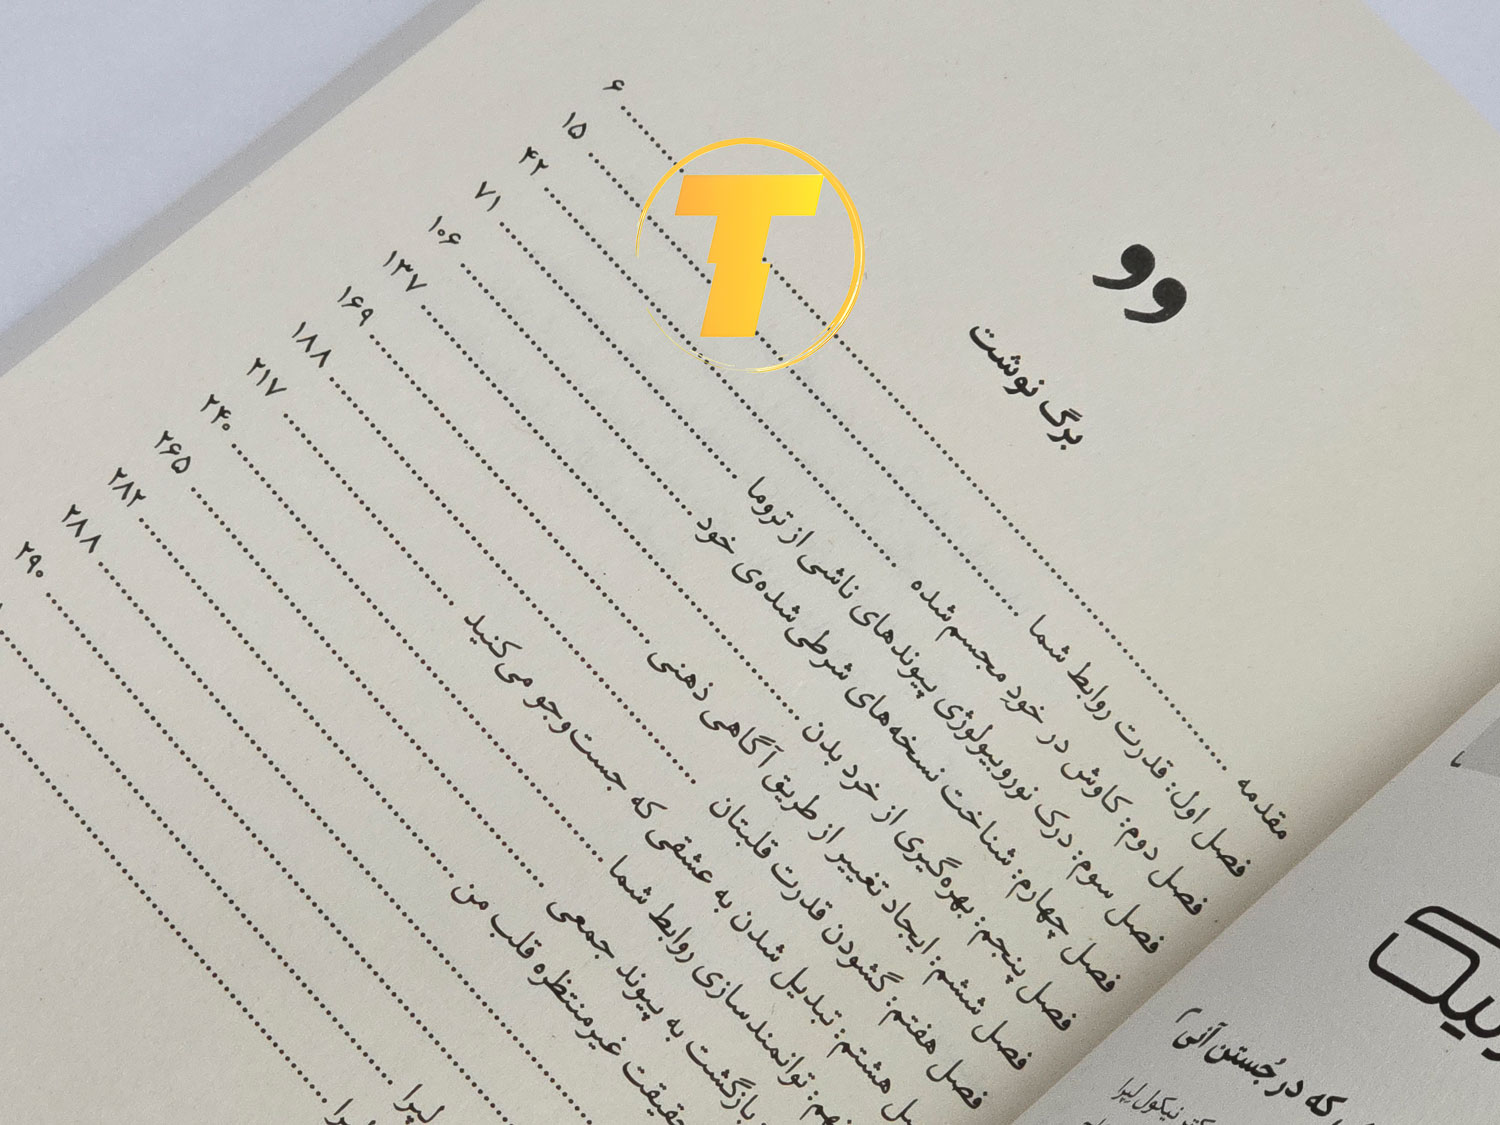 برگ نوشت
مقدمه ........ ۶
فصل اول: قدرت روابط شما ........ ۱۵
فصل دوم: کاوش در خود مجسم‌شده ........ ۴۲
فصل سوم: درک نوروبیولوژی پیوندهای ناشی از تروما ........ ۷۱
فصل چهارم: شناخت نسخه‌های شرطی‌شده‌ی خود ........ ۱۰۶
فصل پنجم: بهره‌گیری از خرد بدن ........ ۱۳۷
فصل ششم: ایجاد تغییر از طریق آگاهی ذهنی ........ ۱۶۹
فصل هفتم: گشودن قدرت قلبتان ........ ۱۸۸
هشتم: تبدیل شدن به عشقی که جست‌وجو می‌کنید ........ ۲۱۷
نهم: توانمندسازی روابط شما ........ ۲۴۰
بازگشت به پیوند جمعی ........ ۲۶۵
حقیقت غیرمنتظره قلب من ........ ۲۸۲
۲۸۸
۲۹۰
لپرا
T
که در جُستن آنی
نیکول لپرا